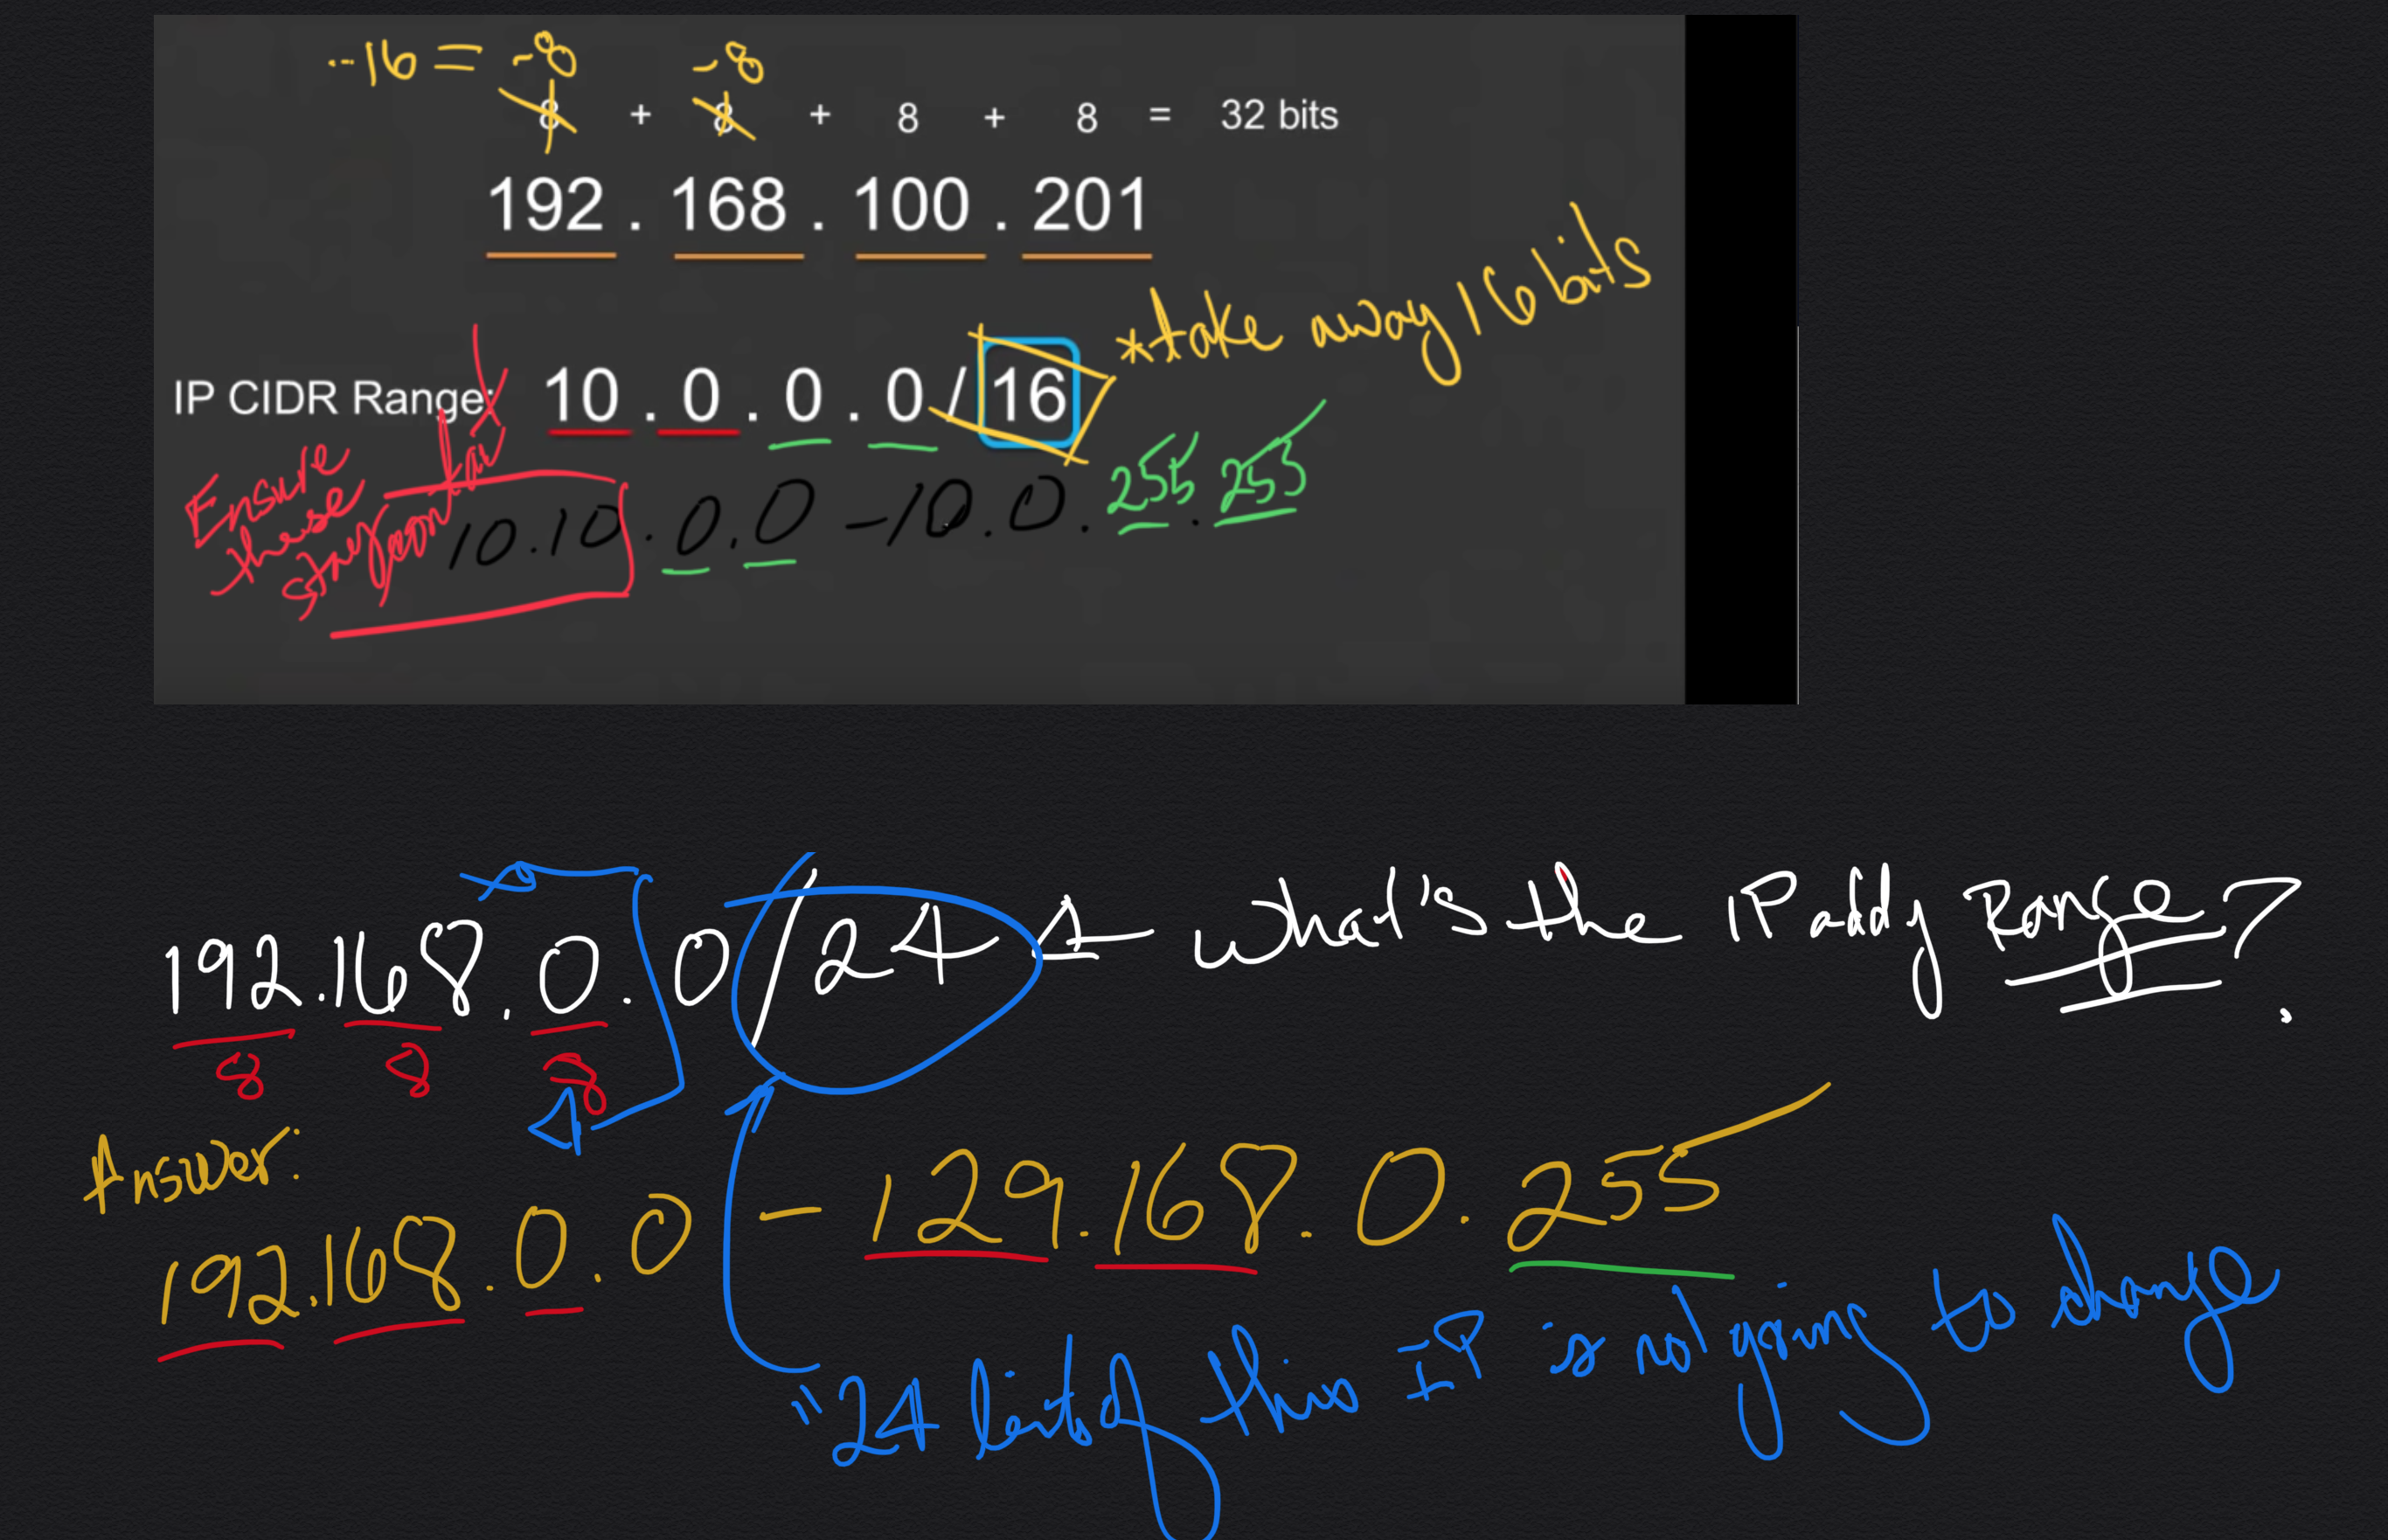 --16 = -8 -8
8 + 8 + 8 + 8 = 32 bits
192 . 168 . 100 . 201
*take away 16 bits
IP CIDR Range: 10 . 0 . 0 . 0 / 16
Ensure these stay constant
10.10.0.0 - 10.0.255.255
192.168.0.0/24 ← What's the IP addy Range?
8 8 8
Answer:
192.168.0.0 - 129.168.0.255
"24 bits of this IP is not going to change